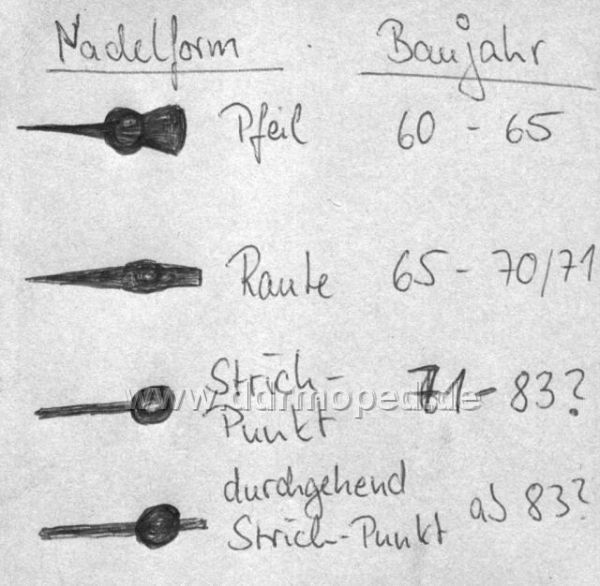 Nadelform Baujahr
Pfeil 60 - 65
Raute 65 - 70/71
Strich- 71 - 83?
Punkt
www.ddrmoped.de
durchgehend
Strich-Punkt ab 83?